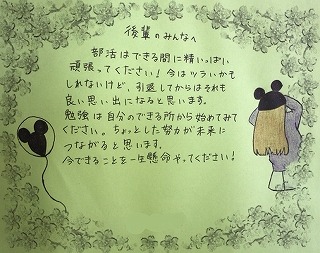 後輩のみんなへ
部活はできる間に精いっぱい
頑張ってください！今はツラいかも
しれないけど、引退してからはそれも
良い思い出になると思います。
勉強は自分のできる所から始めてみて
ください。ちょっとした努力が未来に
つながると思います。
今できることを一生懸命やってください！